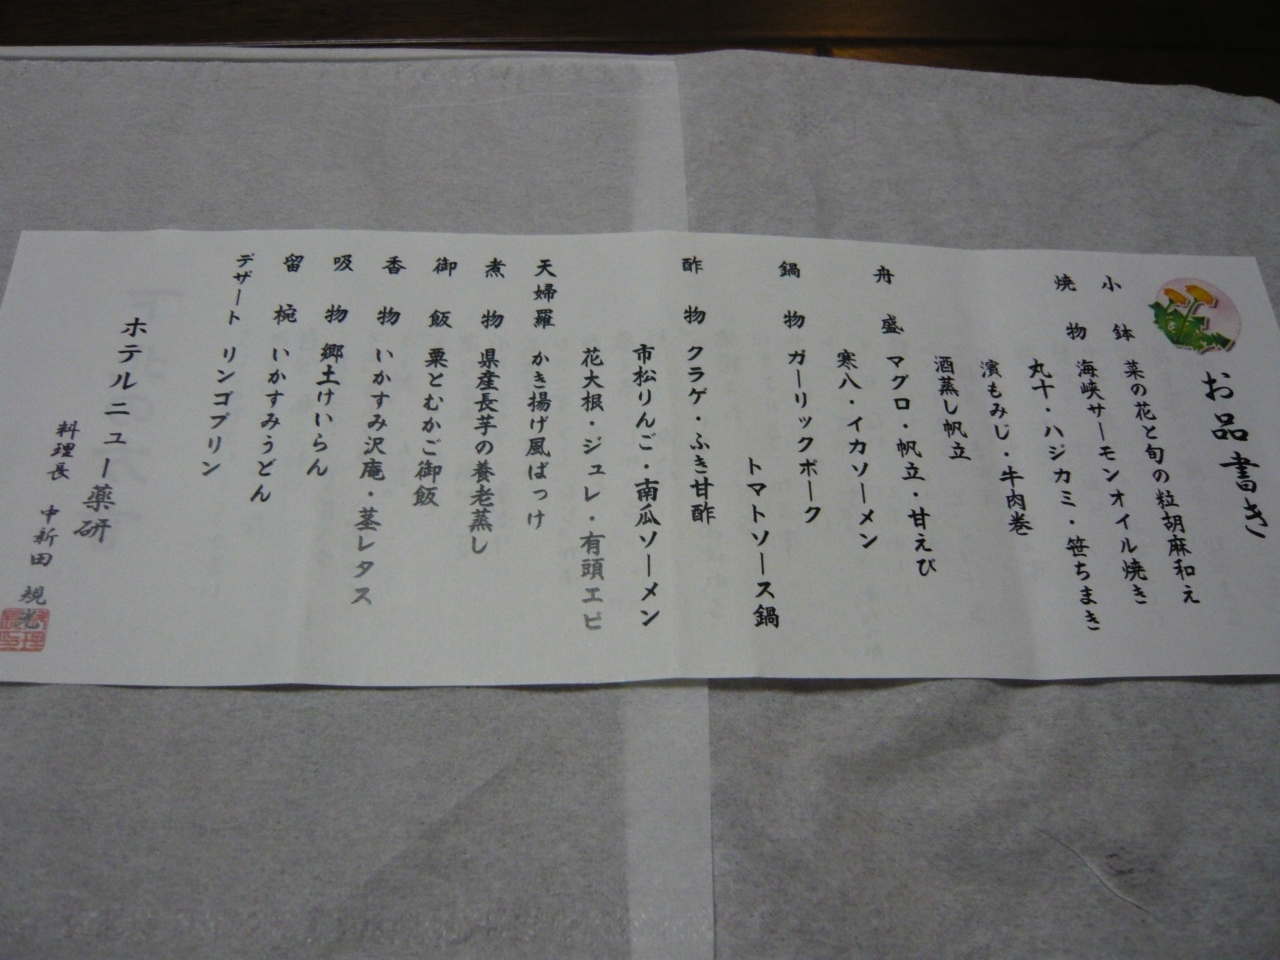 お品書き
小鉢 菜の花と旬の粒胡麻和え
焼物 海峡サーモンオイル焼き
丸十・ハジカミ・笹ちまき
濱もみじ・牛肉巻
酒蒸し帆立
舟盛 マグロ・帆立・甘えび
寒八・イカソーメン
鍋物 ガーリックポーク
トマトソース鍋
酢物 クラゲ・ふき甘酢
市松りんご・南瓜ソーメン
花大根・ジュレ・有頭エビ
天婦羅 かき揚げ風ばっけ
煮物 県産長芋の養老蒸し
御飯 粟とむかご御飯
香物 いかすみ沢庵・茎レタス
吸物 郷土けいらん
留椀 いかすみうどん
デザート リンゴプリン
ホテルニュー薬研
料理長 中新田 規光